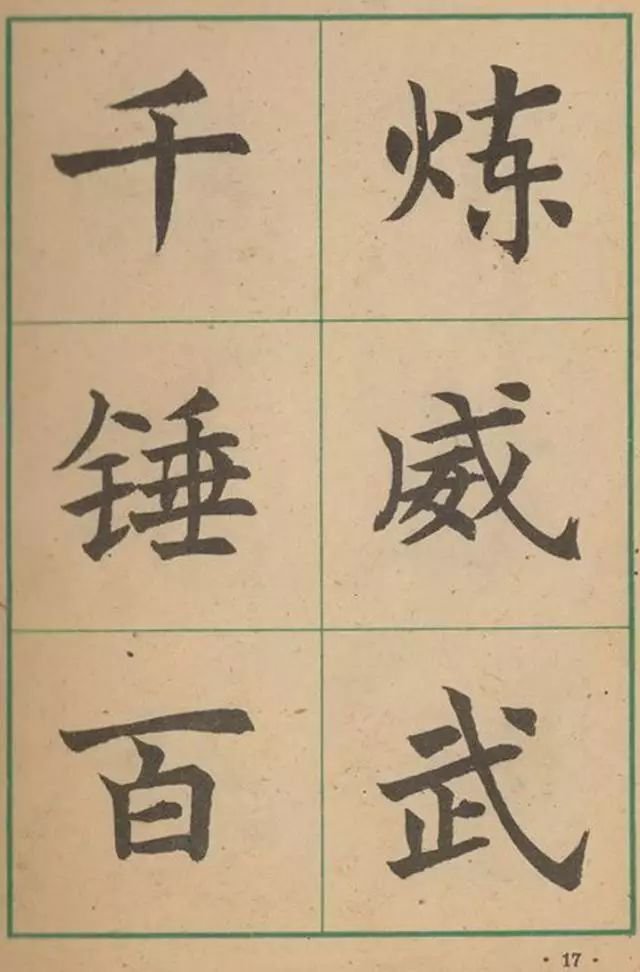 千锤百
炼威武
·17·